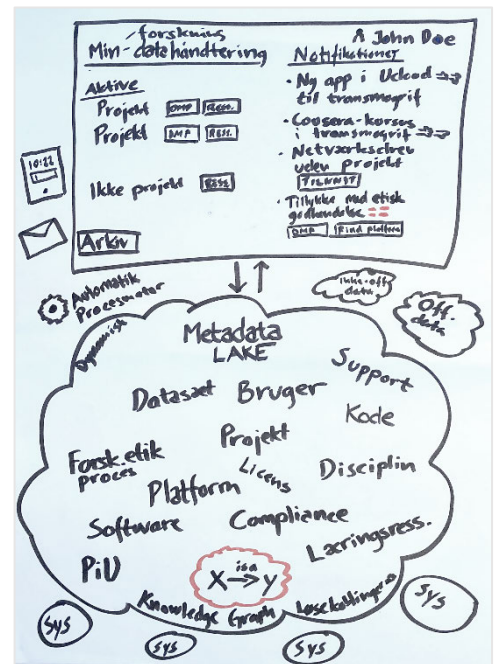 forsknings
Min-datahåndtering
John Doe
Aktive
Projekt DMP RESS.
Projekt DMP RESS.
Ikke projekt RESS
Arkiv
Notifikationer
· Ny app i Ucloud
til transmogrif
· Cousera-kursus
i transmogrif
· Netværkschef
uden projekt
TILKNYT
· Tillykke med etisk
godkendelse
DMP Find platform
10:22
Automatik
Procesmotor
Ikke-off
data
Off.
data
Dynamisk
Metadata
LAKE
Support
Datasæt Bruger
Kode
Projekt
Forsk.etik
proces
Licens
Disciplin
Platform
Software
Compliance
Læringsress.
PiU
isa
X → Y
Knowledge Graph
Løse koblinger
Sys
Sys
Sys
Sys